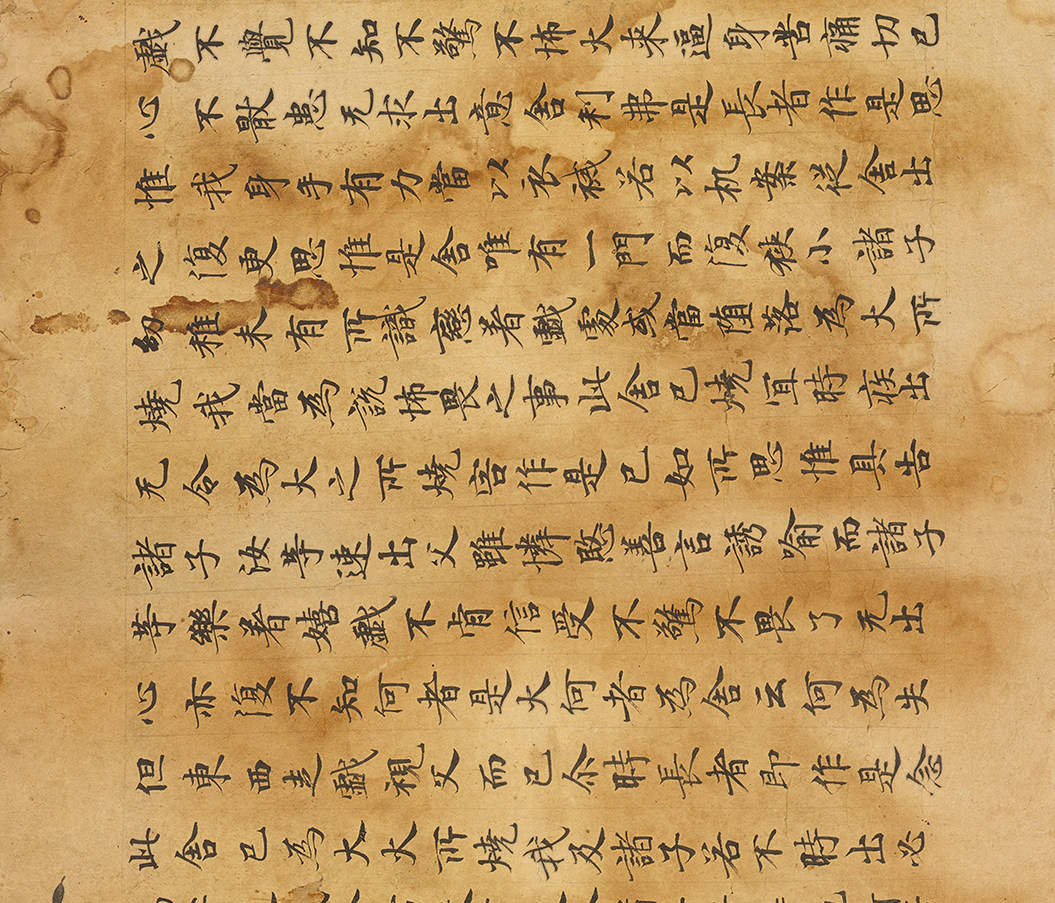 戲不覺不知不驚不怖火来逼身苦痛切己
心不猒患无求出意舍利弗是長者作是思
惟我身手有力當以衣裓若以机案從舍出
之復更思惟是舍唯有一門而復狹小諸子
幼稚未有所識戀着戲處或當堕落為火所
燒我當為説怖畏之事此舍已燒宜時疾出
无令為火之所燒害作是已如所思惟具告
諸子汝等速出父雖憐愍善言誘喻而諸子
等樂着嬉戲不肯信受不驚不畏了无出
心亦復不知何者是火何者為舍云何為失
但東西走戲視父而已尒時長者即作是念
此舍已為大火所燒我及諸子若不時出必